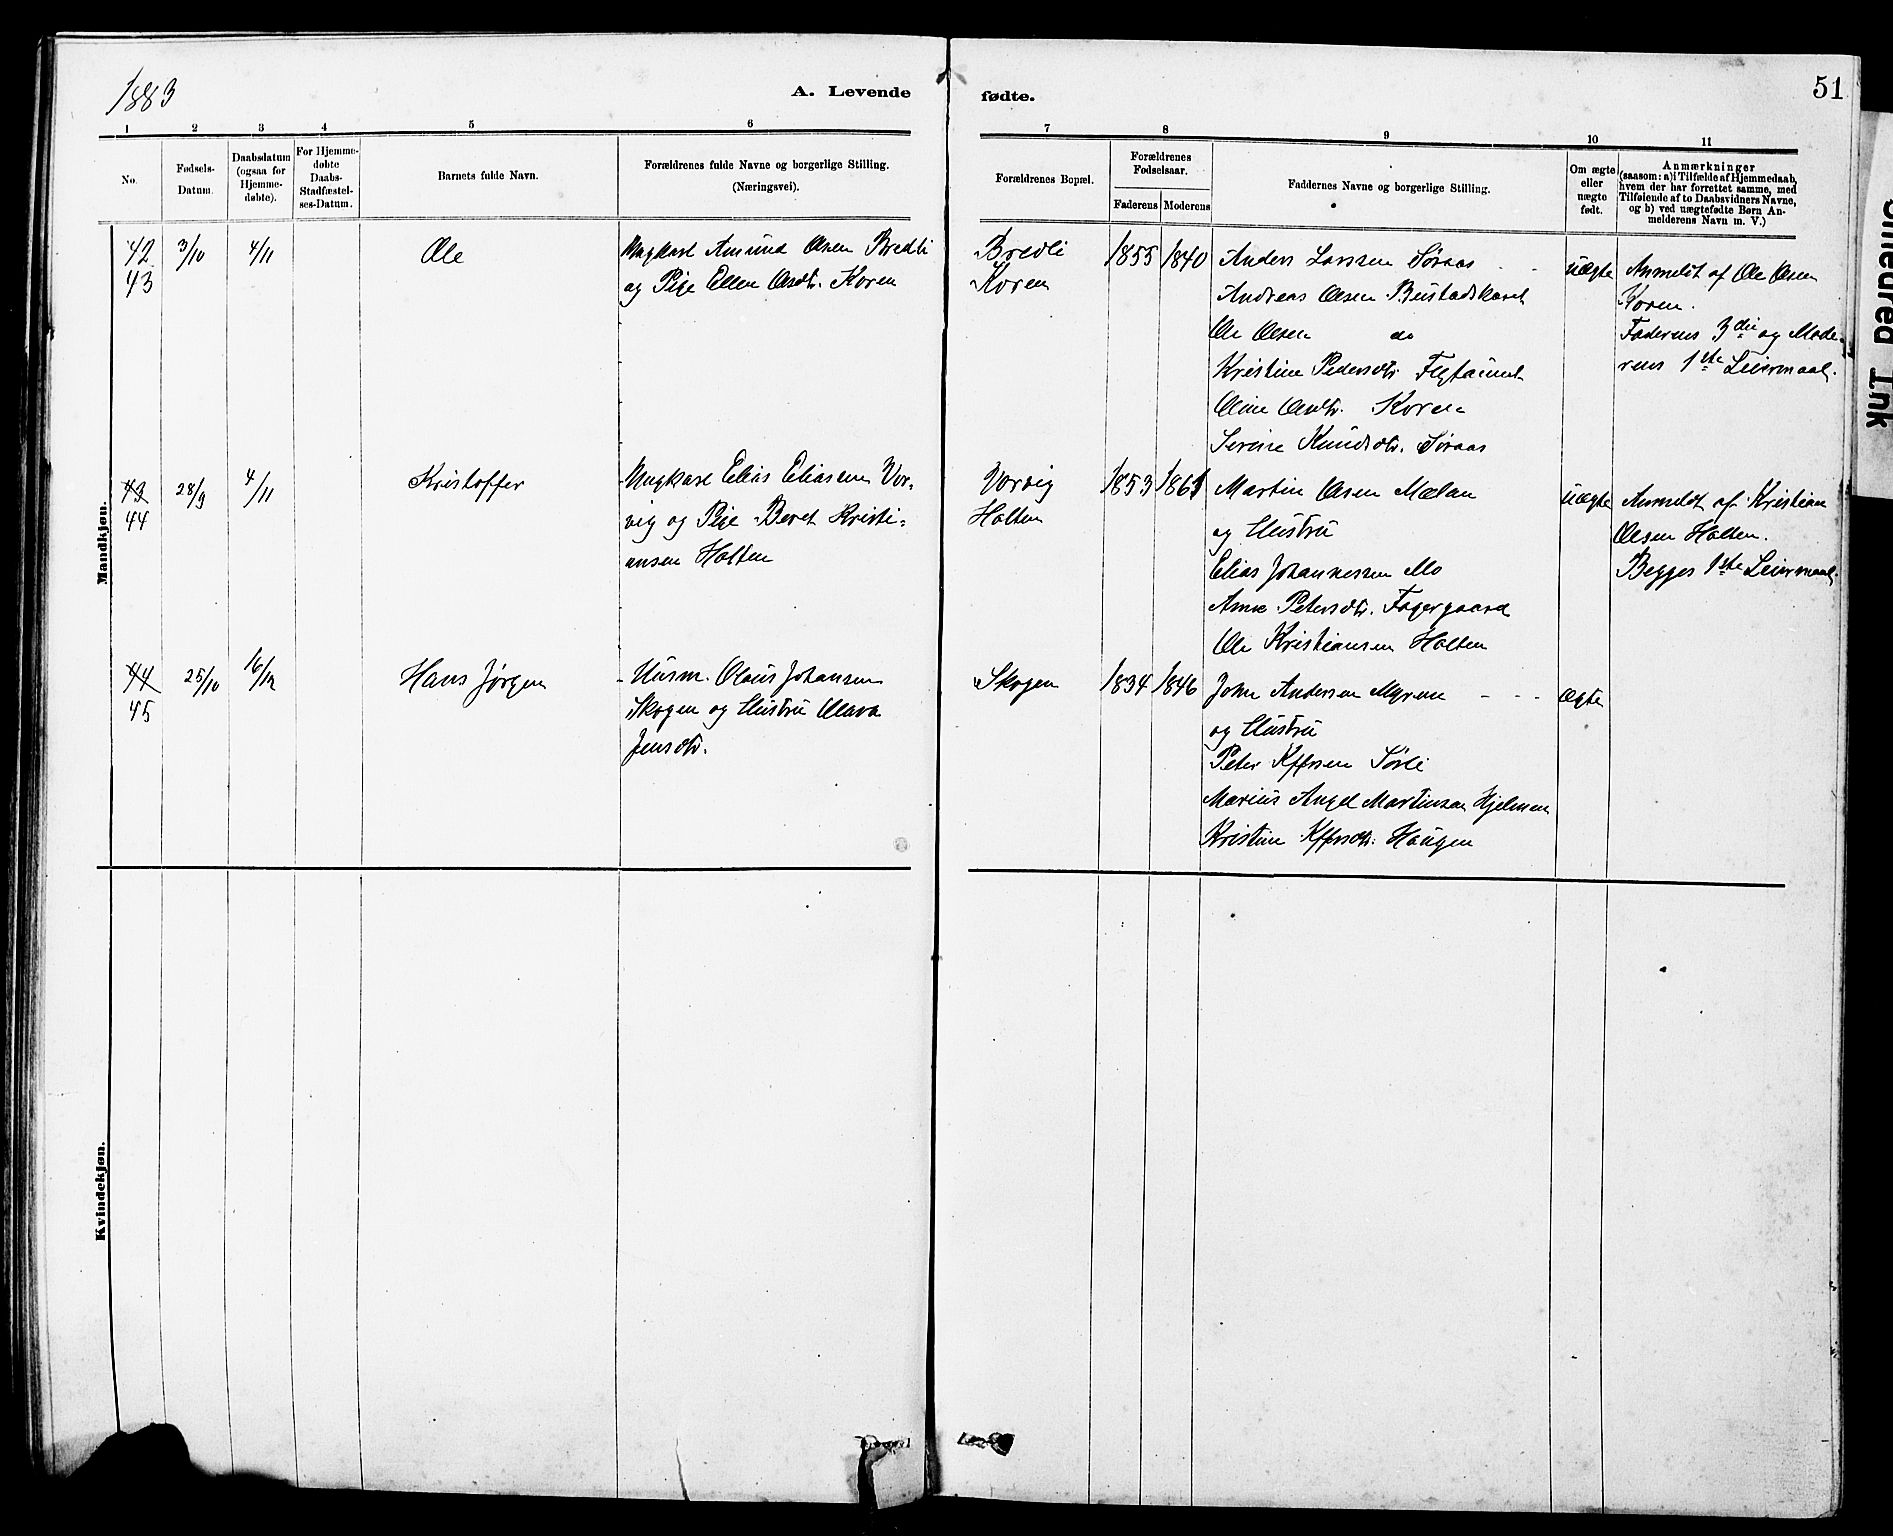 1883
A. Levende
fødte.
51
1 2 3 4 5 6 7 8 9 10 11
No.
Fødsels-
Datum.
Daabsdatum
(ogsaa for
Hjemme-
døbte).
For Hjemme-
døbte
Daabs-
Stadfæstel-
ses-Datum.
Barnets fulde Navn.
Forældrenes fulde Navne og borgerlige Stilling.
(Næringsvei).
Forældrenes Bopæl.
Forældrenes
Fødselsaar.
Faderens Moderens
Faddernes Navne og borgerlige Stilling.
Om ægte
eller
uægte
født.
Anmærkninger
(saasom: a) i Tilfælde af Hjemmedaab,
hvem der har forrettet samme, med
Tilføiende af to Daabsvidners Navne,
og b) ved uægtefødte Børn An-
melderens Navn m. V.)
Mandkjøn.
42
43
3/10
4/11
Ole
Ungkarl Amund Olsen Bredli
og Pige Ellen Olsdtr. Koren
Bredli
Koren
1855
1840
Anders Larssen Søraas
Andreas Olsen Bustadskaret
Ole Olsen do
Kristine Pedersdtr
Oline Olsdtr. Koren
Serine Knudsdtr. Søraas
uægte
Anmeldt af Ole Olsen
Koren.
Faderens 3die og Mode-
rens 1ste Leiermaal.
43
44
28/9
4/11
Kristoffer
Ungkarl Elias Eliassen Vor-
vig og Pige Beret Kristi-
ansen Holten
Vorvig
Holten
1853
1861
Martin Olsen Mælan
og Hustru
Elias Johannessen Mo
Anne Petersdtr. Fagergaard
Ole Kristiansen Holten
uægte
Anmeldt af Kristian
Olsen Holten.
Begges 1ste Leiermaal.
44
45
25/10
16/12
Hans Jørgen
Husm. Olaus Johansen
Skogen og Hustru Olava
Jensdtr.
Skogen
1834
1846
John Andersen Myrene
og Hustru
Peter Kffersen Sørli
Marius Angel Martinsen Hjelmen
Kristine Kffersdtr. Haugen
ægte
Kvindekjøn.